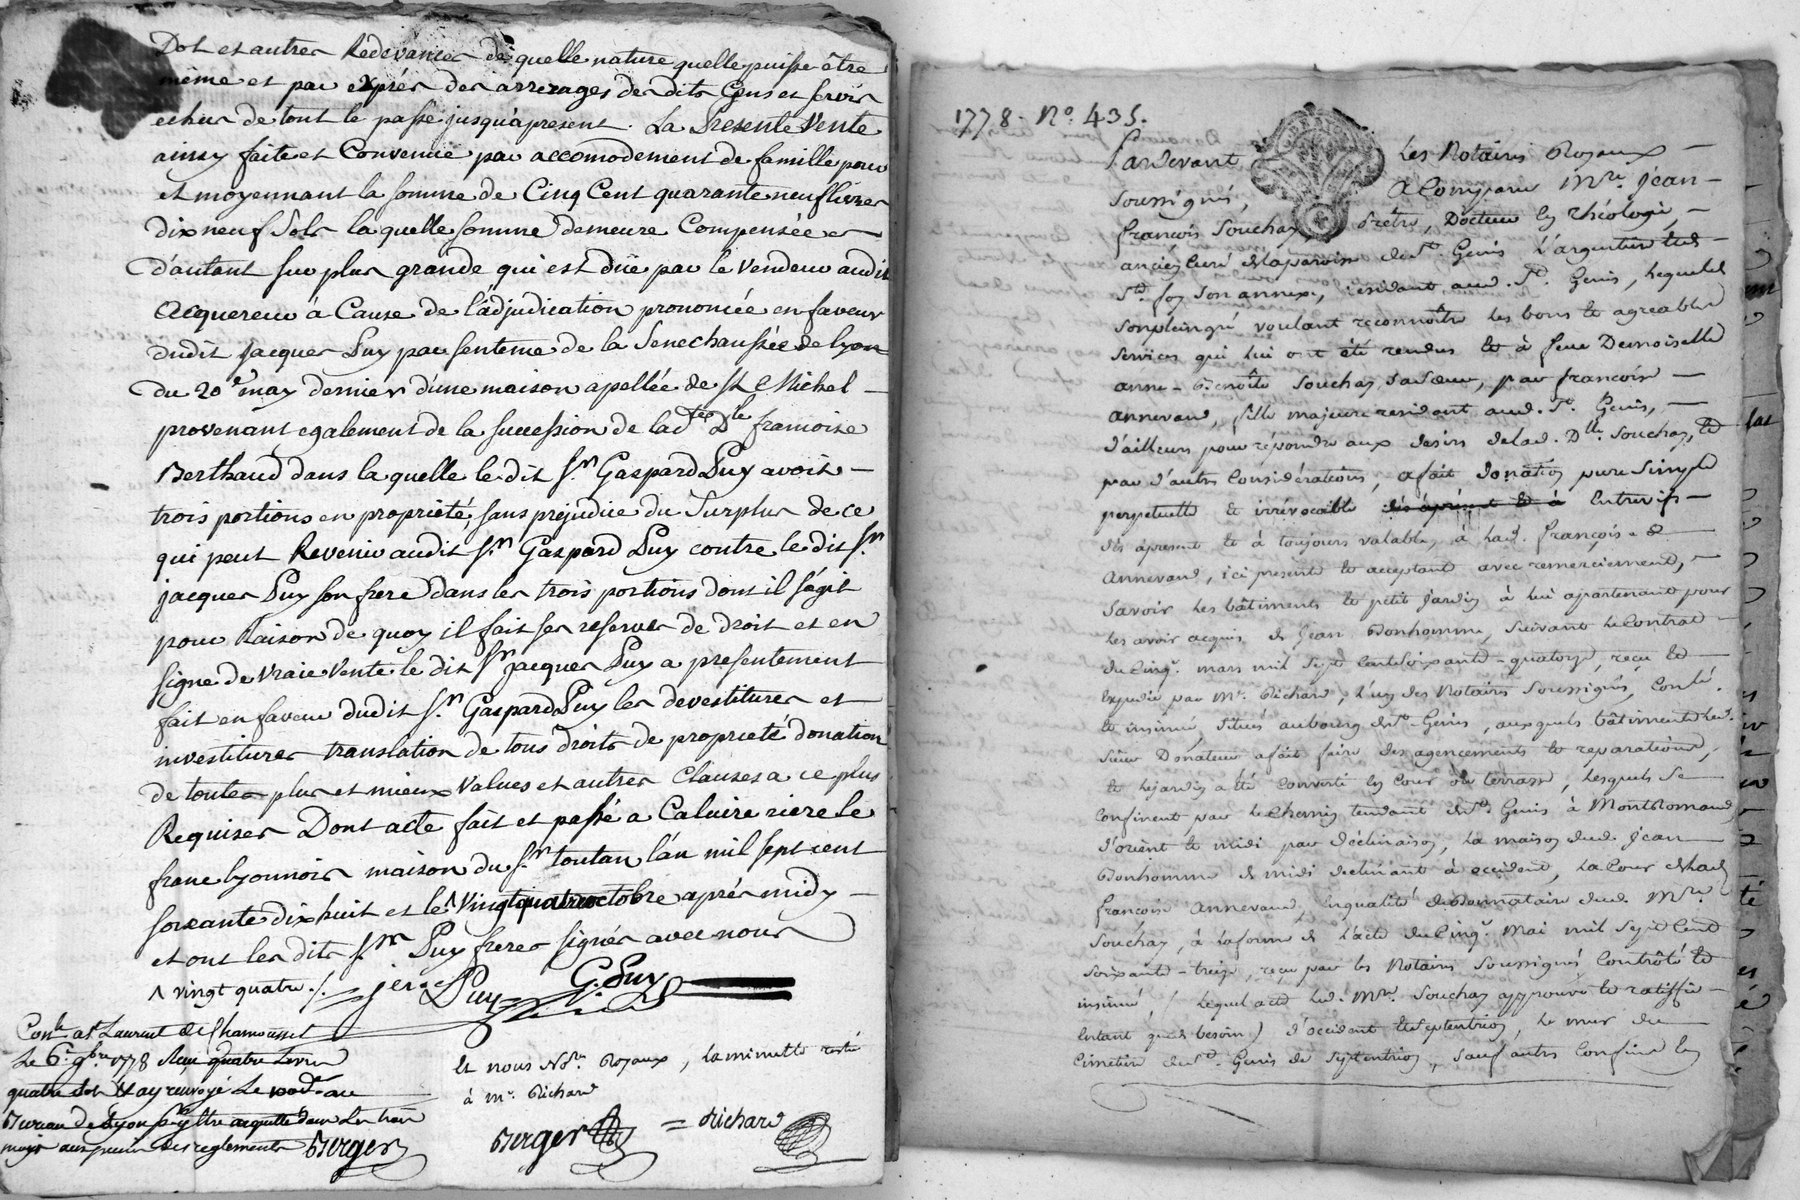 Dot et autres Redevances de quelle nature quelle puisse être
même et par exprès des arrerages des dits Cens et servis
echus de tout le passé jusqu'apresent. La Presente Vente
ainsy faite et Convenue par accomodement de famille pour
et moyennant la somme de Cinq Cent quarante neuf livres
dix neuf Sols la quelle somme demeure Compensée
d'autant sur plus grande qui est düe par le Vendeur audit
acquereur à Cause de l'adjudication prononcée en faveur
dudit jacques Puy par sentense de la Senechaussée de Lyon
du 20e may dernier d'une maison apellée de St Michel
provenant egalement de la succession de lad.te Dlle francoise
Berthaud dans la quelle le dit Sr. Gaspard Puy avoit
trois portions en proprieté, sans prejudice du Surplus de ce
qui peut Revenir audit Sr. Gaspard Puy contre le dit Sr.
jacques Puy son frere dans les trois portions dont il s'agit
pour Raison de quoy il fait ses reserves de droit et en
signe de vraie vente le dit Sr jacques Puy a presentement
fait en faveur dudit Sr. Gaspard Puy les devestitures et
investitures translation de tous droits de proprieté donation
de toutes plus et mieux values et autres Clauses a ce plus
Requises Dont acte fait et passé a Caluire riere le
franc lyonnois maison du Sr. toutan l'an mil sept cent
soixante dix huit et le ^ Vingt quatre octobre après midy
et ont les dits Srs Puy freres signés avec nous
^ vingt quatre ./. jcques Puy G. Puy
Conlé a St Laurent de Chamousset
Le 6e. 9bre 1778 Reçu quatre Livres
quatre sols & ay renvoyé Le
Bureau de Lyon
des reglements Berger
Et nous Nores Royaux, la minutte resté
à Me. Richard
Berger = Richard
1778. No. 435.
Pardevant Les Notaires Royaux
Soussignés, A Comparu Mre. Jean
françois Souchay, Prêtre, Docteur en théologie,
ancien Curé de la paroisse de St. Genis L'argentiere et
Ste. foy son annexe, residant aud. St. Genis, Lequel
de son plein gré voulant reconnoître les bons et agreables
services qui lui ont été rendus et à feue Demoiselle
anne-Benoîte Souchay sa sœur, par françoise
Annevand, fille majeure residant aud. St. Genis,
d'ailleurs pour répondre aux desirs de lad. Dlle. Souchay, et
par d'autres Considérations, a fait donation pure simple
perpetuelle et irrévocable dès àprésent et à Entrevifs
dès àpresent et à toujours valable, à lad. françoise
Annevand, ici presente et acceptant avec remerciement,
Savoir les bâtiments et petit Jardin à lui apartenant pour
les avoir acquis de Jean Bonhomme, suivant le Contrat
du Cinq. mars mil sept Cent soixante-quatorze, reçu et
Expedié par Me. Richard, l'un des Notaires soussignés, Conlé.
et insinué, situés au bourg de St. Genis, auxquels bâtiments led.
sieur Donateur a fait faire des agencements et reparations,
et le jardin a été converti en Cour ou terrasse, lesquels se
confinent par le Chemin tendant de St. Genis à Montromand
d'orient et midi par déclinaison, la maison dud. Jean
Bonhomme de midi declinant à occident, la Cour de lad.
françoise Annevand, en qualité de donnataire dud. Mre.
Souchay, à la forme de l'acte du Cinq. Mai mil sept Cent
soixante-treize, reçu par les Notaires Soussignés Contrôlé et
insinué, (lequel acte led. Mre. Souchay approuve et ratiffie
entant que de besoin) d'occident et septentrion, le mur du
Cimetiere de St. Genis de septentrion, sauf autres Confins en